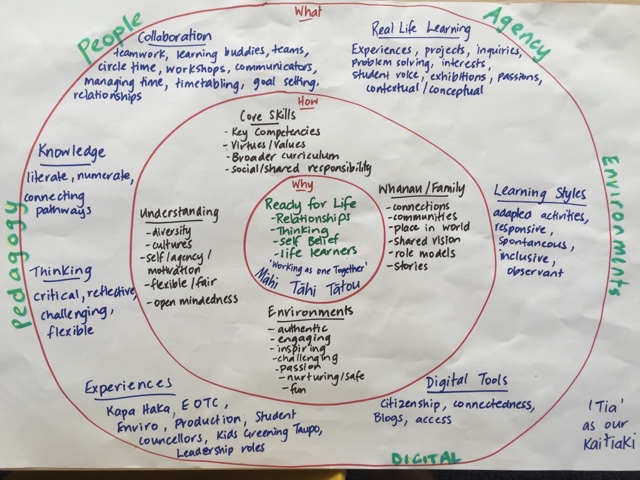 What
People
Agency
Collaboration
teamwork, learning buddies, teams,
circle time, workshops, communicators,
managing time, timetabling, goal setting.
relationships
Real Life Learning
Experiences, projects, inquiries,
problem solving, interests,
student voice, exhibitions, passions,
contextual/conceptual
How
Core Skills
- Key Competencies
- Virtues/Values
- Broader curriculum
- social/shared responsibility
Knowledge
literate, numerate,
connecting
pathways
Pedagogy
Thinking
critical, reflective,
challenging,
flexible
Understanding
- diversity
- cultures
- self/agency/
motivation
- flexible/fair
- open mindedness
Why
Ready for Life
- Relationships
- Thinking
- Self Belief
- life learners
'Working as one Together'
Mahi Tāhi Tātou
Whanau/Family
- connections
- communities
- place in world
- shared vision
- role models
- stories
Learning Styles
adapted activities,
responsive,
spontaneous,
inclusive,
observant
Environments
Environments
- authentic
- engaging
- inspiring
- challenging
- passion
- nurturing/safe
- fun
Experiences
Kapa Haka, EOTC,
Enviro, Production, Student
councellors, Kids Greening Taupo,
Leadership roles
Digital Tools
Citizenship, connectedness,
Blogs, access
DIGITAL
'Tia'
as our
Kaitiaki